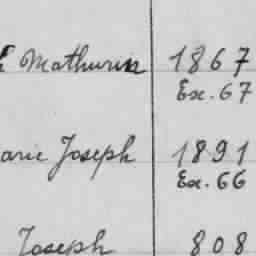 Mathurin 1867
Ex. 67
arie Joseph 1891
Ex. 66
Joseph 808